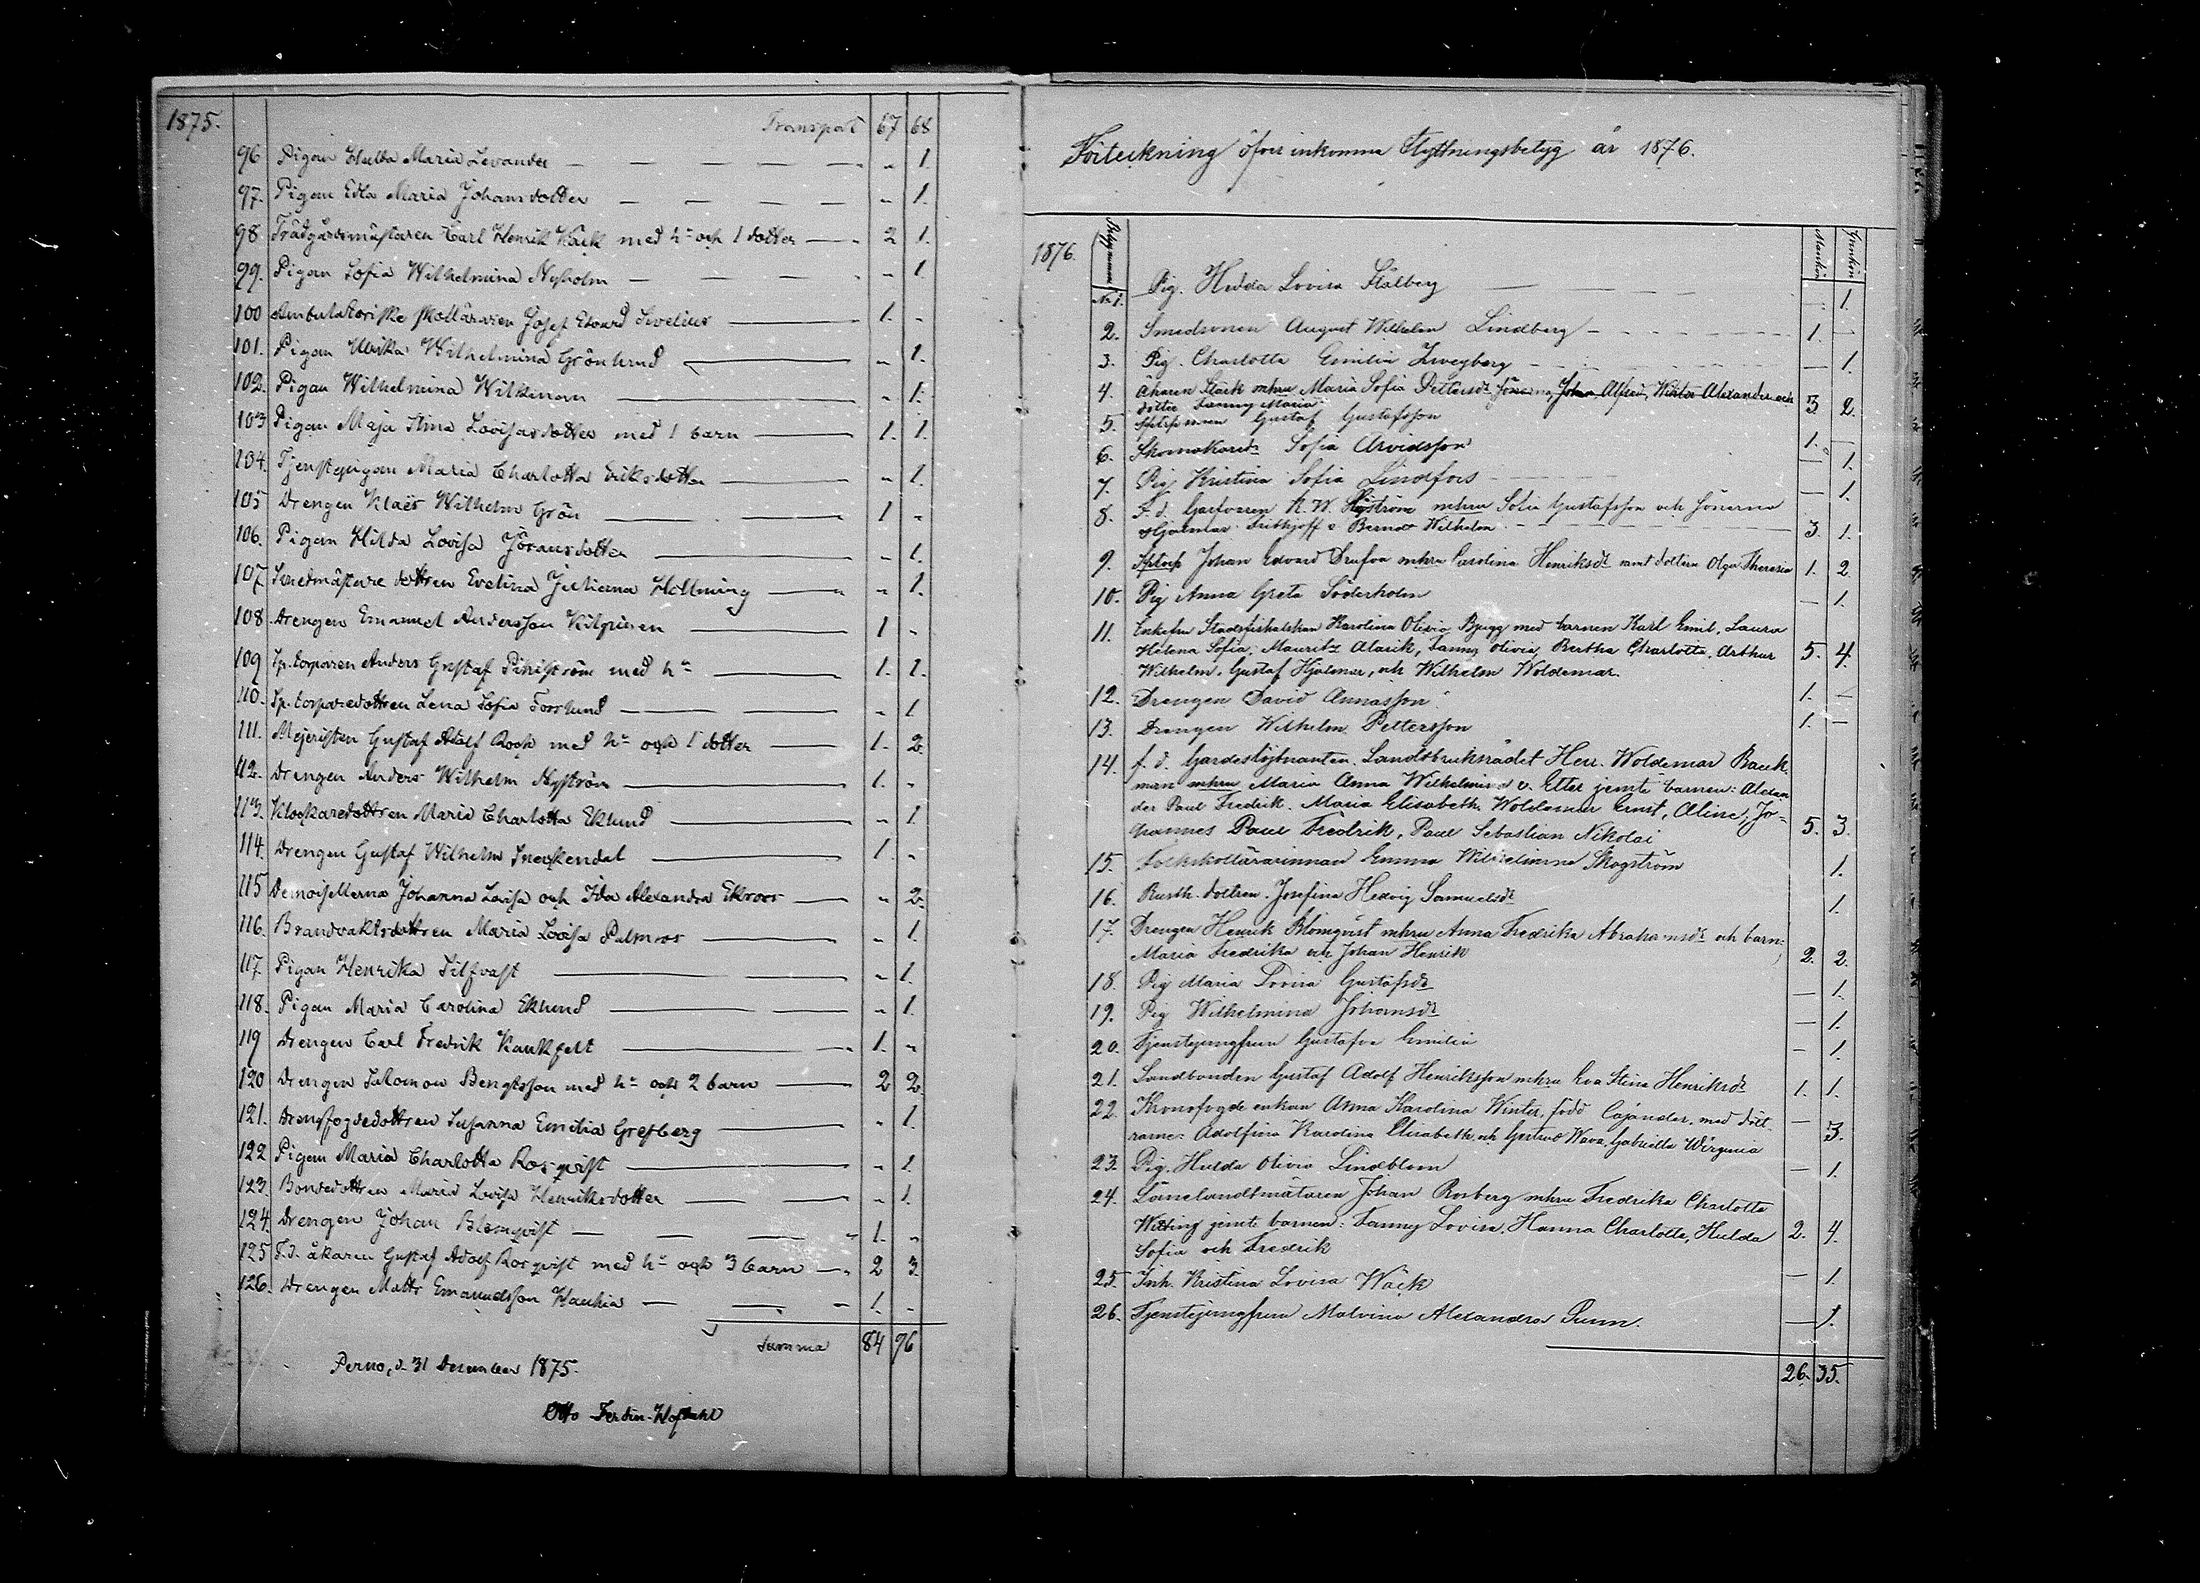 1875.
Transport 67 68
96 Pigan Hulda Maria Levander — — — — — " 1
97. Pigan Edla Maria Johansdotter — — — — " 1.
98 Trädgårdsmästaren Carl Henrik Wäck med h" och 1 dotter — 2 1.
99. Pigan Sofia Wilhelmina Nyholm — — — — " 1
100 Ambulatoriske skolläraren Josef Edvard Sivelius — 1. "
101. Pigan Ulrika Wilhelmina Grönlund — " 1.
102. Pigan Wilhelmina Wilkman — " 1.
103 Pigan Maja Stina Lovisasdotter med 1 barn — 1. 1.
104. Tjenstepigan Maria Charlotta Eriksdotter — " 1.
105 Drengen Klaës Wilhelm Grön — 1 "
106. Pigan Hilda Lovisa Göransdotter — " 1.
107. Smedmästare dottren Evelina Juliana Hollming — " 1.
108. Drengen Emanuel Andersson Kilpinen — 1 "
109 Sp. torparen Anders Gustaf med h" — 1. 1.
110. Sp. torparedottren Lena Sofia Forslund — " 1
111. Mejeristen Gustaf Adolf Koch med h" och 1 dotter — 1. 2.
112. Drengen Anders Wilhelm Nyström — 1. "
113. Klockaredottren Maria Charlotta Eklund — " 1
114. Drengen Gustaf Wilhelm — 1. "
115 Demoisellerna Johanna Lovisa och Ida Alexandra Ekroos — " 2.
116. Brandvaktsdottren Maria Lovisa Palmroos — " 1.
117. Pigan Henrika Silfvast — " 1.
118. Pigan Maria Carolina Eklund — " 1.
119 Drengen Carl Fredrik — 1. "
120 Drengen Salomon Bengtsson med h" och 2 barn — 2 2.
121. dottren Susanna Emilia Grefberg — " 1.
122 Pigan Maria Charlotta Rosqvist — " 1.
123. Bondedottren Maria Lovisa Henriksdotter — " 1.
124. Drengen Johan Blomqvist — 1. "
125 F.d. åkaren Gustaf Adolf Rosqvist med h" och 3 barn — 2 3.
126. Drengen Matts Emanuelsson Hauhia — 1. "
Summa 84 96
Perno, d. 31 December 1875.
Otto Ferdin.
Förteckning öfver inkomna Flyttningsbetyg år 1876.
1876.
Mankön Qvinkön
No 1. Pig. Hedda Lovisa Stålberg — 1.
2. Smedsonen August Wilhelm Lindberg — 1. —
3. Pig. Charlotta Emilia Zweyberg — 1.
4. Åkaren Stark mhru Maria Sofia Pettersdr. Sönerna, Johan Alfred, Wiktor Alexander och
dotter Fanny Maria 3. 2.
5. Gustaf Gustafsson 1. —
6. Skomakaredr Sofia Arvidsson — 1.
7. Pig Kristina Sofia Lindfors — 1.
8. F. d. Garfvaren K. W. Nyström mhru Sofia Gustafsson och Sönerna
Hjalmar Frithjoff o Bernd Wilhelm — 3. 1.
9. Johan Edvard Drufva mhru Carolina Henriksdr samt dottern Olga Theresia 1. 2.
10. Pig Anna Greta Söderholm — 1.
11. Enkefru Stadsfiskalskan Karolina Olivia Bygg med barnen Karl Emil, Laura
Helena Sofia, Mauritz Alarik, Fanny Olivia, Bertha Charlotta, Arthur
Wilhelm, Gustaf Hjalmar, och Wilhelm Woldemar. 5. 4.
12. Drengen David Annasson 1. —
13. Drengen Wilhelm Pettersson 1. —
14. f. d. Gardeslöjtnanten, Landtbruksrådet Herr Woldemar Back
man mhru Maria Anna Wilhelmina v. Etter jemte barnen: Alexan
der Paul Fredrik, Maria Elisabeth, Woldemar Ernst, Aline, Jo-
hannes Paul Fredrik, Paul Sebastian Nikolai 5. 3.
15. Folkskollärarinnan Emma Wilhelmina Skogström 1.
16. Rusth. dottren Josefina Hedvig Samuelsdr 1.
17. Drengen Henrik Blomqvist mhru Anna Fredrika Abrahamsdr och barn:
Maria Fredrika och Johan Henrik 2. 2.
18. Pig Maria Lovisa Gustafsdr — 1.
19. Pig Wilhelmina Johansdr — 1.
20. Tjenstejungfrun Gustafva Emilia — 1.
21. Landbonden Gustaf Adolf Henriksson mhru Eva Stina Henriksdr 1. 1.
22. Kronofogde enkan Anna Karolina Winter, född Cajander, med dött
rarne: Adolfina Karolina Elisabeth och Gertrud Wava Gabriella Wirginia — 3.
23. Pig. Hulda Olivia Lindblom — 1.
24. Länelandtmätaren Johan Rosberg mhru Fredrika Charlotta
Witting jemte barnen: Fanny Lovisa, Hanna Charlotta, Hulda
Sofia och Fredrik 2. 4.
25. Inh. Kristina Lovisa Wäck — 1.
26. Tjenstejungfrun Malvina Alexandra Sunn. — 1.
26. 35.